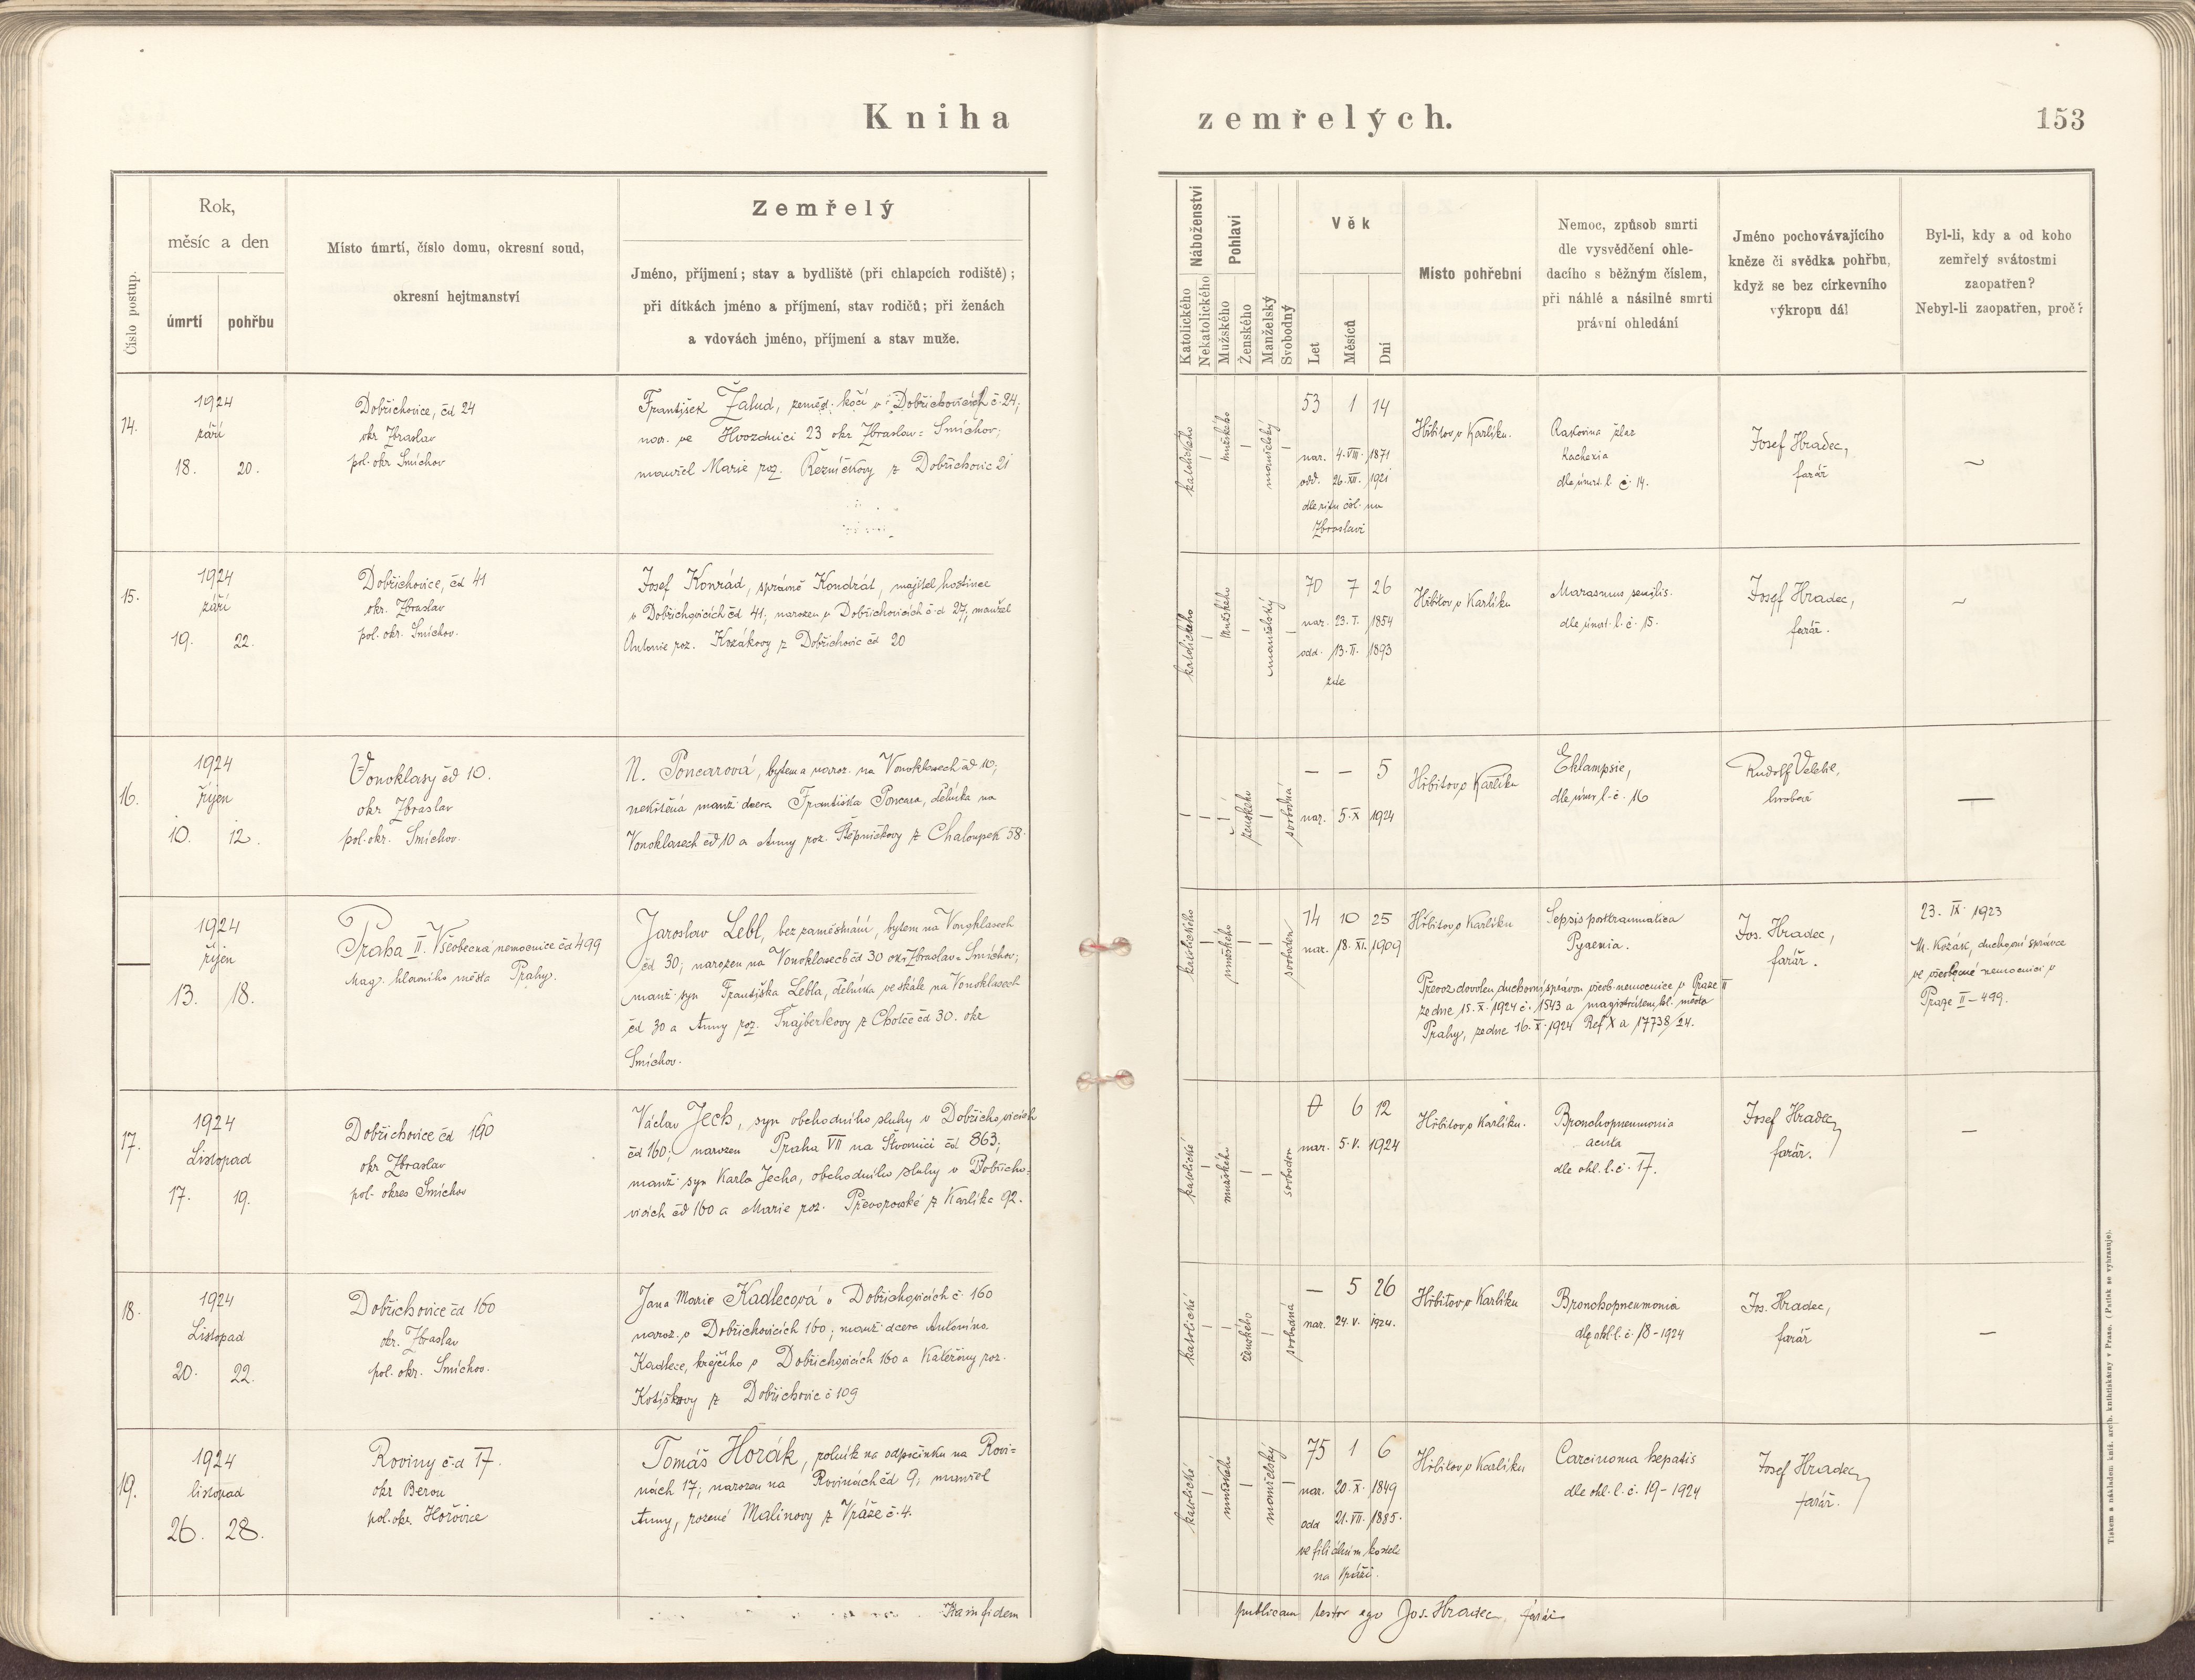 Kniha
zemřelých.
153
Číslo postup.
Rok,
měsíc a den
úmrtí
pohřbu
Místo úmrtí, číslo domu, okresní soud,
okresní hejtmanství
Zemřelý
Jméno, příjmení; stav a bydliště (při chlapcích rodiště);
při dítkách jméno a příjmení, stav rodičů; při ženách
a vdovách jméno, příjmení a stav muže.
Náboženství
Katolického
Nekatolického
Pohlaví
Mužského
Ženského
Manželský
Svobodný
Věk
Let
Měsíců
Dní
Místo pohřební
Nemoc, způsob smrti
dle vysvědčení ohle-
dacího s běžným číslem,
při náhlé a násilné smrti
právní ohledání
Jméno pochovávajícího
kněze či svědka pohřbu,
když se bez církevního
výkropu dál
Byl-li, kdy a od koho
zemřelý svátostmi
zaopatřen?
Nebyl-li zaopatřen, proč?
14.
1924
září
18. 20.
Dobřichovice, čd 24
okr Zbraslav
pol. okr Smíchov
František Žalud, zeměd. kočí v Dobřichovicích č. 24;
nar. ve Hvozdnici 23 okr Zbraslav = Smíchov;
manžel Marie roz. Řezníčkovy z Dobřichovic 21
katolického
mužského
manželský
53 1 14
nar. 4. VIII. 1871
odd. 26. XII. 1921
dle ritu čsl. na
Zbraslavi
Hřbitov v Karlíku.
Rakovina žlaz
Kachexia
dle úmrt. l. č. 14.
Josef Hradec,
farář
15.
1924
září
19. 22.
Dobřichovice, čd 41
okr. Zbraslav
pol. okr. Smíchov.
Josef Konrád, správně Kondrát, majitel hostince
v Dobřichovicích čd 41; narozen v Dobřichovicích č.d 27; manžel
Antonie roz. Kozákovy z Dobřichovic čd 20
katolického
mužského
manželský
70 7 26
nar. 23. I. 1854
odd. 13. II. 1893
zde
Hřbitov v Karlíku
Marasmus senilis.
dle úmrt. l. č. 15.
Josef Hradec,
farář.
16.
1924
říjen
10. 12.
Vonoklasy čd 10.
okr Zbraslav
pol. okr. Smíchov.
N. Poncarová, bytem a naroz. na Vonoklasech čd 10;
nekřtěná manž. dcera Františka Poncara, dělníka na
Vonoklasech čd 10 a Anny roz. Štěpničkovy z Chaloupek 58.
ženského
svobodná
— — 5
nar. 5. X 1924
Hřbitov v Karlíku
Eklampsie,
dle úmr. l. č. 16
Rudolf Velehl,
hrobař
1924
říjen
13. 18.
Praha II. Všeobecná nemocnice čd 499
Mag. hlavního města Prahy.
Jaroslav Lebl, bez zaměstnání, bytem na Vonoklasech
čd 30; narozen na Vonoklasech čd 30 okr Zbraslav = Smíchov;
manž. syn Františka Lebla, dělníka ve skále na Vonoklasech
čd 30 a Anny roz. Šnajberkovy z Chotče čd 30. okr
Smíchov.
katolického
mužského
svoboden
14 10 25
nar. 18. XI. 1909
Hřbitov v Karlíku
Sepsis posttraumatica
Pyaemia.
Převoz dovolen duchovní správou všeob. nemocnice v Praze II
ze dne 15. X. 1924 č. 1543 a magistrátem hl. města
Prahy, ze dne 16. X. 1924 Ref X a 17738/24.
Jos. Hradec,
farář.
23. IX. 1923
M. Kozák, duchovní správce
ve všeobecné nemocnici v
Praze II – 499.
17.
1924
Listopad
17. 19.
Dobřichovice čd 160
okr Zbraslav
pol. okres Smíchov
Václav Jech, syn obchodního sluhy v Dobřichovicích
čd 160; narozen Praha VII na Štvanici čd 863;
manž. syn Karla Jecha, obchodního sluhy v Dobřicho-
vicích čd 160 a Marie roz. Převorovské z Karlíka 92.
katolické
mužského
svoboden
0 6 12
nar. 5. V. 1924
Hřbitov v Karlíku.
Bronchopneumonia
acuta
dle ohl. l. č. 17.
Josef Hradec,
farář.
18.
1924
Listopad
20. 22.
Dobřichovice čd 160
okr. Zbraslav
pol. okr. Smíchov.
Jana Marie Kadlecová v Dobřichovicích č. 160
naroz. v Dobřichovicích 160; manž. dcera Antonína
Kadlece, krejčího v Dobřichovicích 160 a Kateřiny roz.
Kotíškovy z Dobřichovic č 109
katolické
ženského
svobodná
— 5 26
nar. 24. V. 1924.
Hřbitov v Karlíku
Bronchopneumonia
dle ohl. l. č. 18 – 1924
Jos. Hradec,
farář
19.
1924
listopad
26. 28.
Roviny č.d 17.
okr Beroun
pol. okr. Hořovice
Tomáš Horák, rolník na odpočinku na Rovi-
nách 17; narozen na Rovinách čd 9; manžel
Anny, rozené Malinovy z Vráže č. 4.
katolické
mužského
manželský
75 1 6
nar. 20. X. 1849
odd 21. VII. 1885.
ve filiálním kostele
na Vráži.
Hřbitov v Karlíku
Carcinoma hepatis
dle ohl. l. č. 19 – 1924
Josef Hradec,
farář.
Ita in fidem
publicam testor ego Jos. Hradec, farář
Tiskem a nákladem kníž. arcib. knihtiskárny v Praze. (Patisk se vyhrazuje).